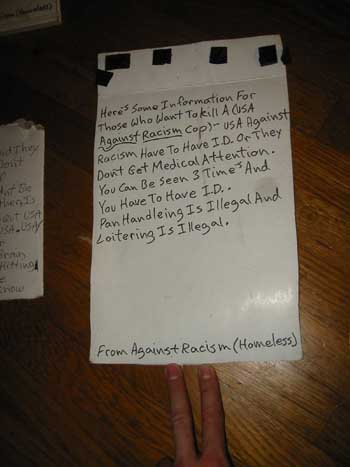 (Homeless)
Here's Some Information For
Those Who Want To Kill A (USA
Against Racism Cop)-- USA Against
Racism Have To Have I.D. Or They
Don't Get Medical Attention.
You Can Be Seen 3 Time's And
You Have To Have I.D..
Pan Handleing Is Illegal And
Loitering Is Illegal.
From Against Racism (Homeless)
And They
Don't
USA
USA. USA
Hitting
Know